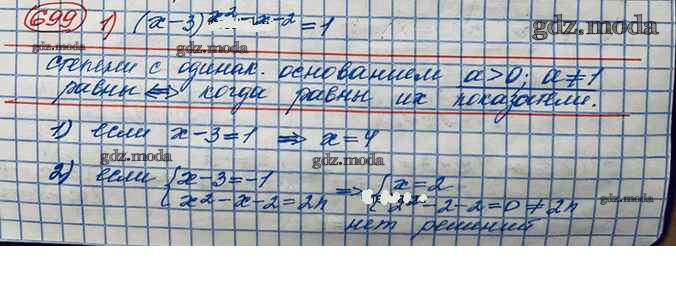 699 1) (x-3)^x²-x-2 = 1
gdz.moda
gdz.moda
степени с одинак. основанием a>0; a≠1
равны ⟺ когда равны их показатели.
gdz.moda
gdz.moda
1) если x-3=1 ⇒ x=4
gdz.moda
gdz.moda
2) если { x-3=-1 ⇒ { x=2
{ x²-x-2=2n { 2²-2-2=0≠2n
gdz.moda
gdz.moda
нет решений